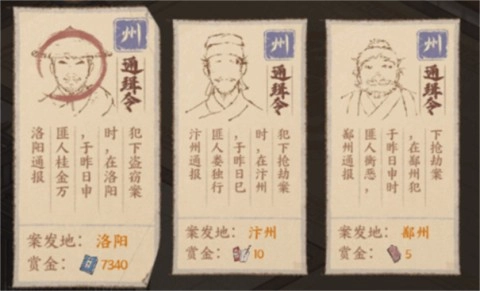 州
通缉令
犯下盗窃案
时，在洛阳
，于昨日申
匪人桂金万
洛阳通报
案发地：洛阳
赏金：7340
州
通缉令
犯下抢劫案
时，在汴州
，于昨日巳
匪人娄独行
汴州通报
案发地：汴州
赏金：10
州
通缉令
下抢劫案
时，在鄯州犯
于昨日申时
匪人衡恶，
鄯州通报
案发地：鄯州
赏金：5